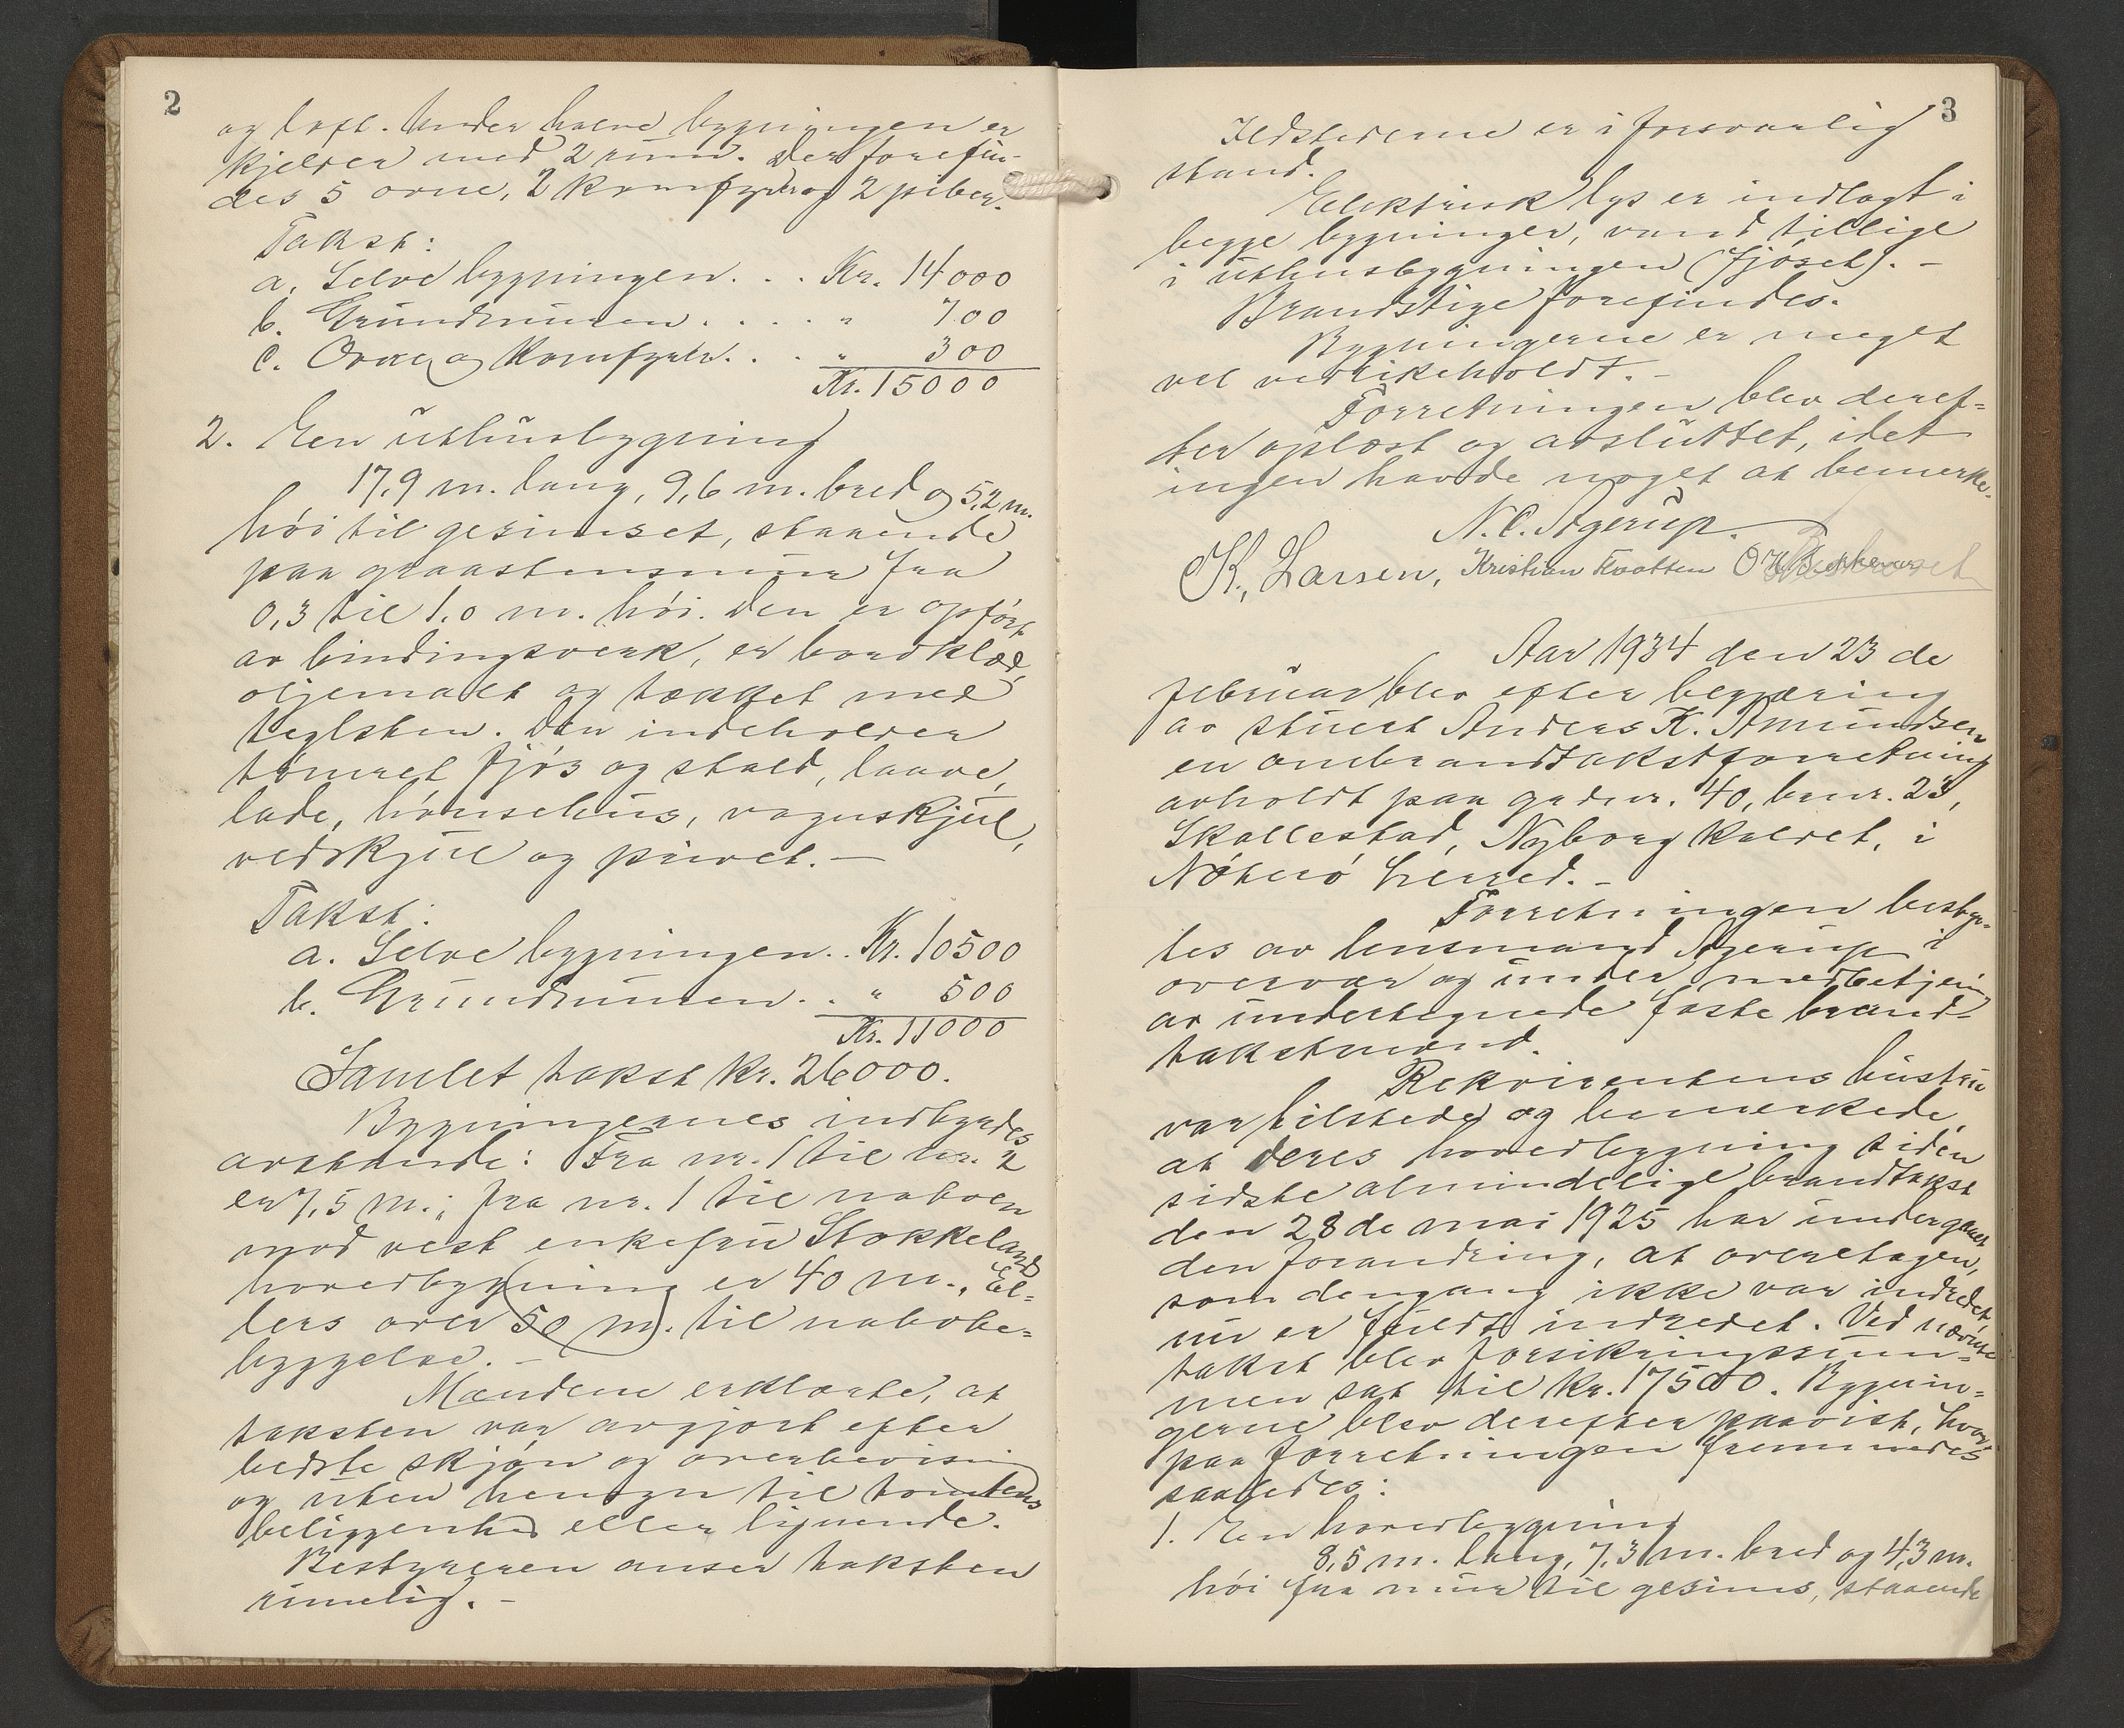 2
og loft. Under halve bygningen er
kjelder med 2 rum. Der forefin-
des 5 ovne, 2 komfyrer og 2 piber.
Takst:
a. Selve bygningen. . . Kr. 14000
b. Grundmuren. . . . . " 700
c. Ovne og Komfyrer. . . " 300
Kr. 15000
2. En uthusbygning
17,9 m. lang, 9,6 m. bred og 5,2 m.
høi til gesimset, staaende
paa graastensmur fra
0,3 til 1.0 m. høi. Den er opført
av bindingsverk, er bordklæd,
oljemalt og tækket med
teglsten. Den indeholder
tømret fjøs og stald, laave,
lade, hønsehus, vognskjul,
vedskjul og privet. –
Takst:
a. Selve bygningen. . Kr. 10500
b. Grundmuren. . . " 500
Kr. 11000
Samlet takst Kr. 26000.
Bygningernes indbyrdes
avstande: Fra nr. 1 til nr. 2
er 7,5 m.; fra nr. 1 til naboen
mod vest enkefru Stokkeland
hovedbygning er 40 m., El-
lers over 50 m. til nabobe-
byggelse. –
Mændene erklærte, at
taksten var avgjort efter
bedste skjøn og overbevisning
og uten hensyn til tomtens
beliggenhed eller lignende.
Bestyreren anser taksten
rimelig. –
3
Ildstederne er i forsvarlig
stand.
Elektrisk lys er indlagt i
begge bygninger, vand tillige
i uthusbygningen (fjøset). –
Brandstige forefindes.
Bygningerne er meget
vel vedlikeholdt. –
Forretningen blev deref-
ter oplæst og avsluttet, idet
ingen havde noget at bemerke.
N. C. Agerup.
K. Larsen, Kristian
Aar 1934 den 23 de
februar blev efter begjæring
av stuert Anders K. Amundsen
en ombrandtakstforretning
avholdt paa gardnr. 40, brnr. 23,
Skallestad, Nyborg kaldet, i
Nøterø herred. –
Forretningen besty-
tes av lensmand Agerup i
overvær og under medbetjening
av undertegnede faste brand-
takstmænd.
Rekvirentens hustru
var tilstede og bemerkede,
at deres hovedbygning siden
sidste almindelige brandtakst
den 28 de mai 1925 har undergaaet
den forandring, at overetagen,
som dengang ikke var indredet,
nu er fuldt indredet. Ved nævnte
takst blev forsikringssum-
men sat til Kr. 17500. Bygnin-
gerne blev derefter paavist, hvor-
paa forretningen fremmedes
saaledes:
1. En hovedbygning
8,5 m. lang, 7,3 m. bred og 4,3 m.
høi fra mur til gesims, staaende